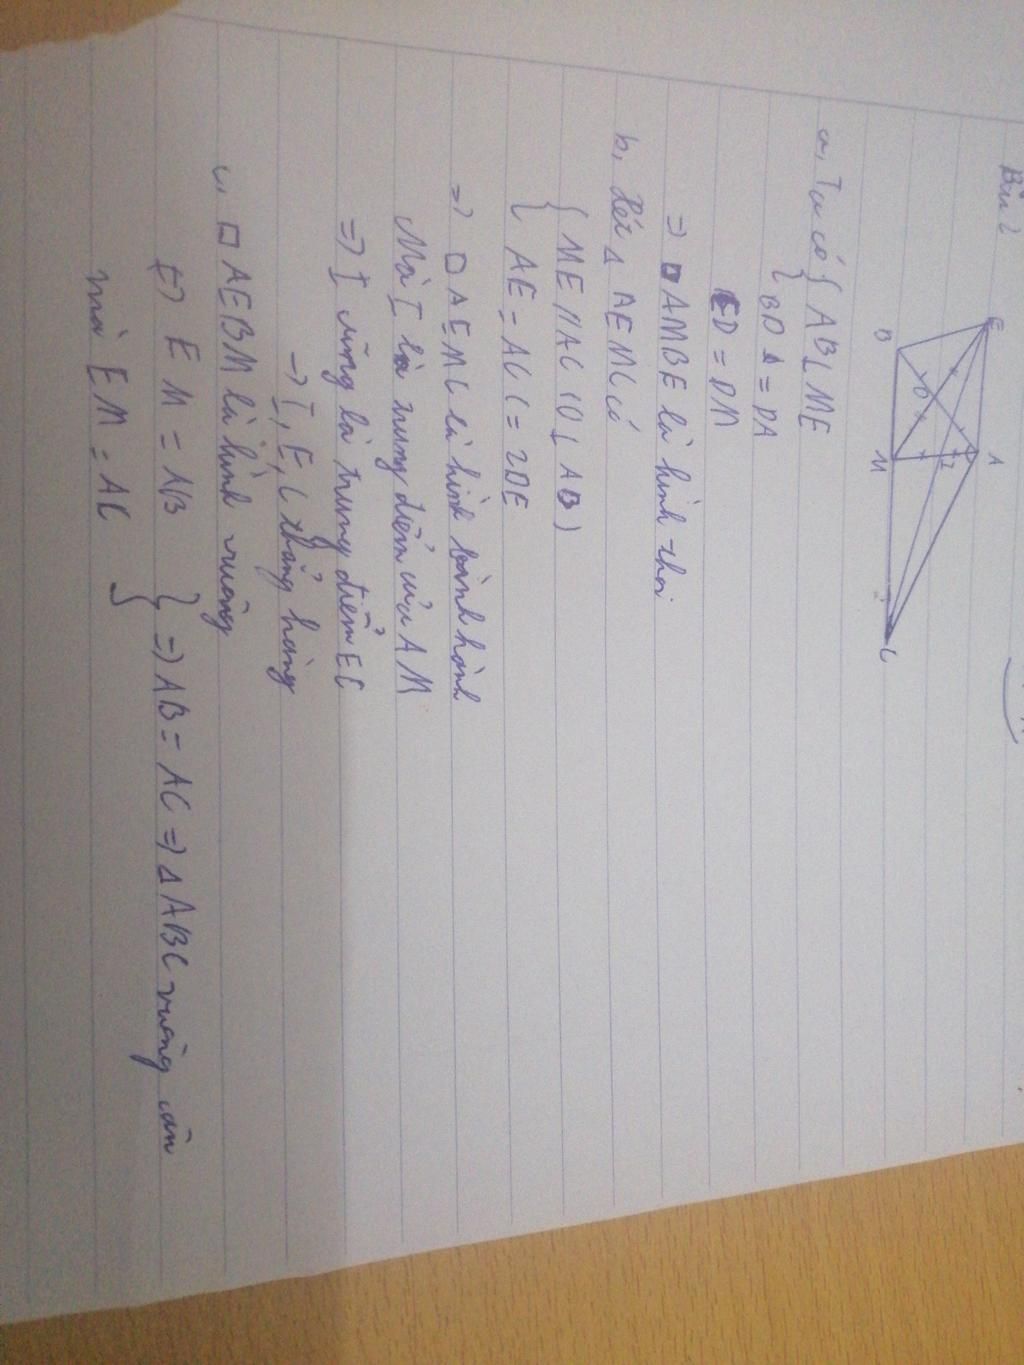 Bài 2
E
A
B
D
I
M
C
a, Ta có { AB ⊥ ME
{ BD = DA
ED = DM
=> □ AMBE là hình thoi
b, Xét Δ AEMC có
{ ME // AC (⊥ AB)
{ AE = AC (= 2DE
=> □ AEMC là hình bình hành
Mà I là trung điểm của AM
=> I cũng là trung điểm EC
-> I, E, C thẳng hàng
c, □ AEBM là hình vuông
<=> EM = AB } => AB = AC => Δ ABC vuông cân
mà EM = AC }